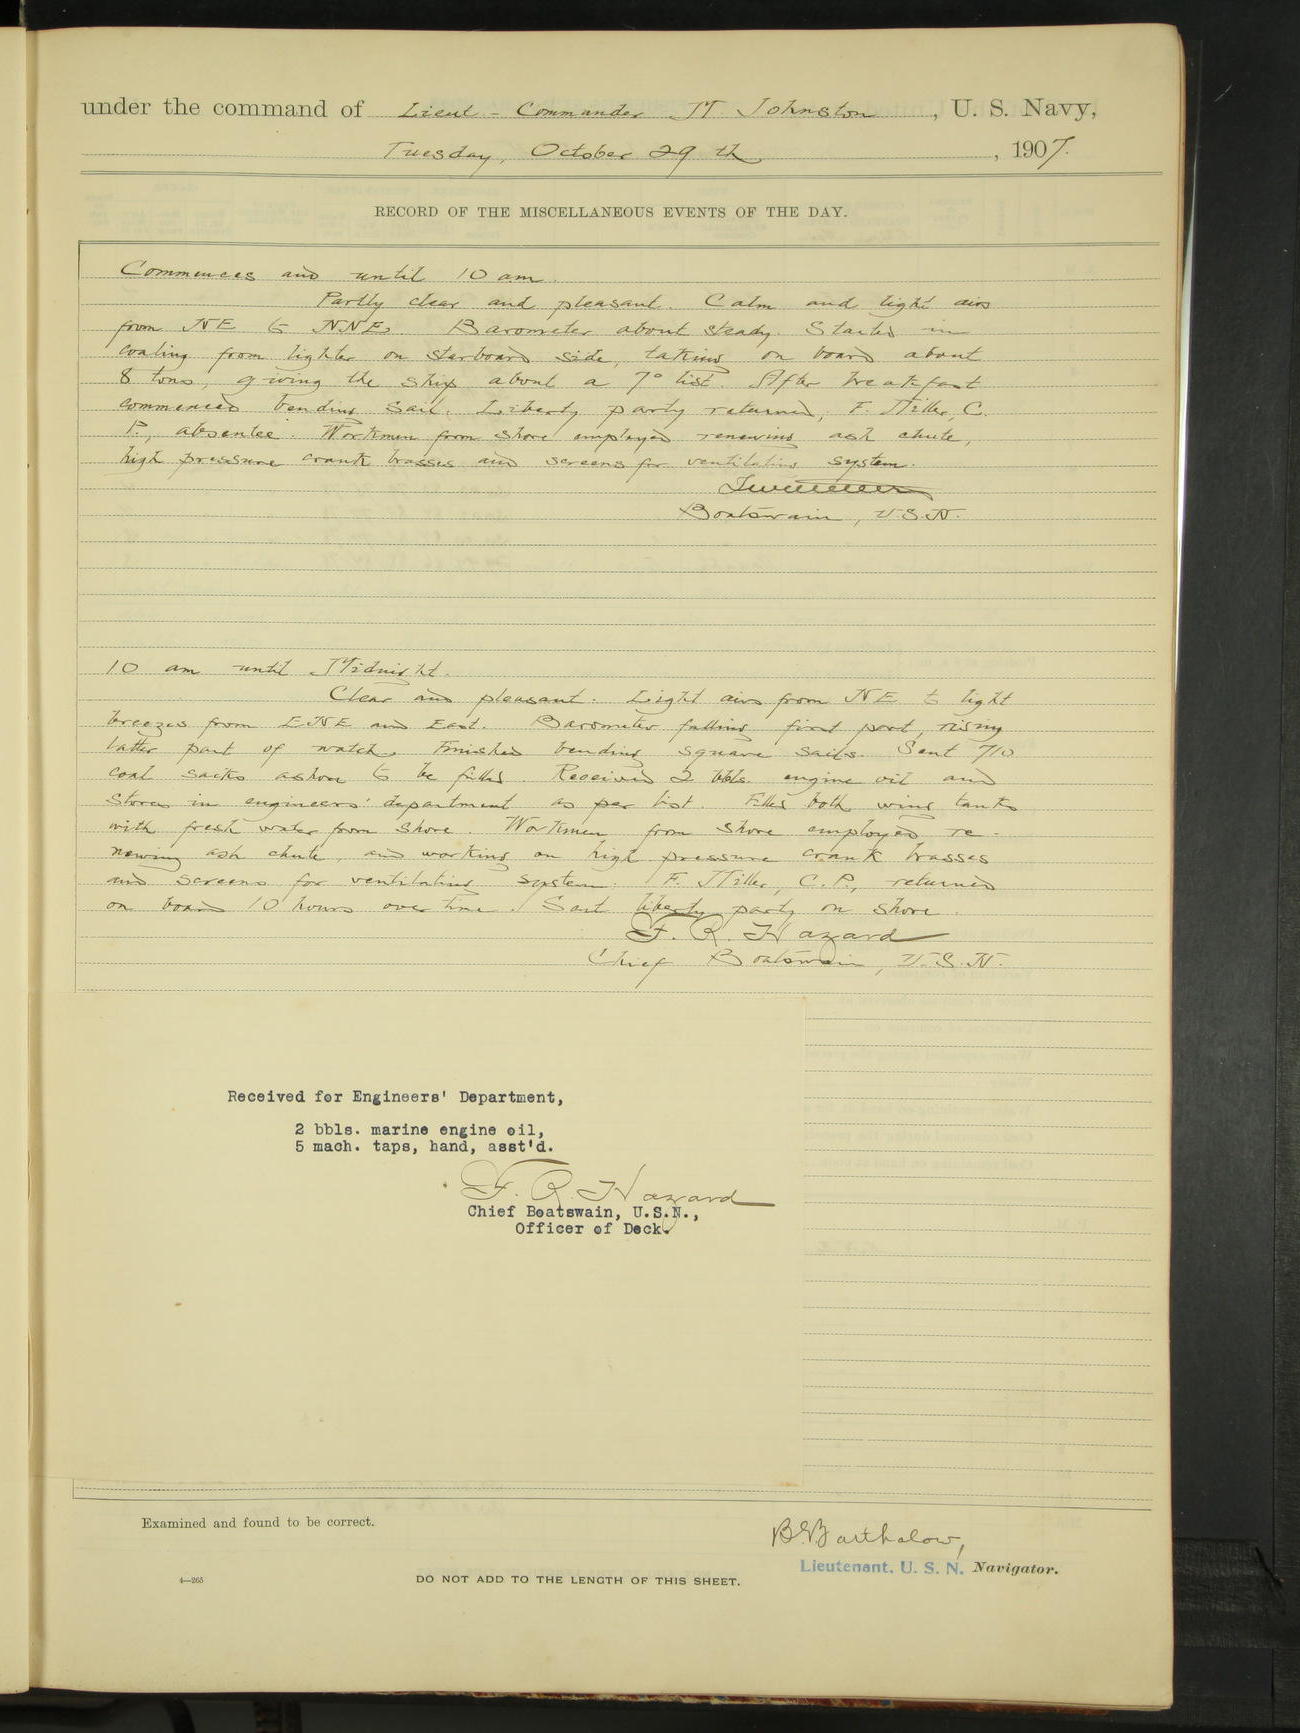 under the command of Lieut - Commander M Johnston, U. S. Navy,
Tuesday, October 29 th, 1907.
RECORD OF THE MISCELLANEOUS EVENTS OF THE DAY.
Commences and until 10 am.
Partly clear and pleasant. Calm and light airs
from NE to NNE. Barometer about steady. Started in
coaling from lighter on starboard side, taking on board about
8 tons, giving the ship about a 7° list. After breakfast
commenced bending sail. Liberty party returned, F. Miller, C.
P., absentee. Workmen from shore employed renewing ash chute,
high pressure crank brasses and screens for ventilating system.
Boatswain, U.S.N.
10 am until Midnight.
Clear and pleasant. Light airs from NE to light
breezes from ENE and East. Barometer falling first part, rising
latter part of watch. Finished bending square sails. Sent 710
coal sacks ashore to be filled. Received 2 bbls. engine oil and
stores in engineers' department as per list. Filled both wing tanks
with fresh water from shore. Workmen from shore employed re-
newing ash chute, and working on high pressure crank brasses
and screens for ventilating system. F. Miller, C. P., returned
on board 10 hours over time. Sent liberty party on shore.
F. R. Hazard
Chief Boatswain, U.S.N.
Received for Engineers' Department,
2 bbls. marine engine oil,
5 mach. taps, hand, asst'd.
F. R. Hazard
Chief Boatswain, U.S.N.,
Officer of Deck.
Examined and found to be correct.
Barthalow,
Lieutenant, U. S. N. Navigator.
4—265
DO NOT ADD TO THE LENGTH OF THIS SHEET.